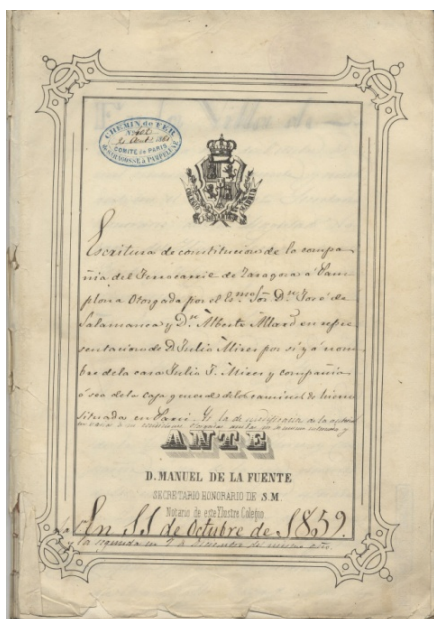 CHEMIN de FER
COMITÉ de PARIS
de SARAGOSSE à PAMPELUNE
Escritura de constitucion de la compa-
ñia del Ferrocarril de Zaragoza á Pam
plona Otorgada por el Dn. José de
Salamanca y Dn. Alberto en repre
sentacion de D. Julio Mires por si y á nom
bre de la casa Julio F. Mires y compañia
ó sea de la Caja general de los caminos de hierro
situada en Paris.
ANTE
D. MANUEL DE LA FUENTE
SECRETARIO HONORARIO DE S.M.
Notario de este Ilustre Colegio
En 11 de Octubre de 1859.
y la segunda en de mismo año.